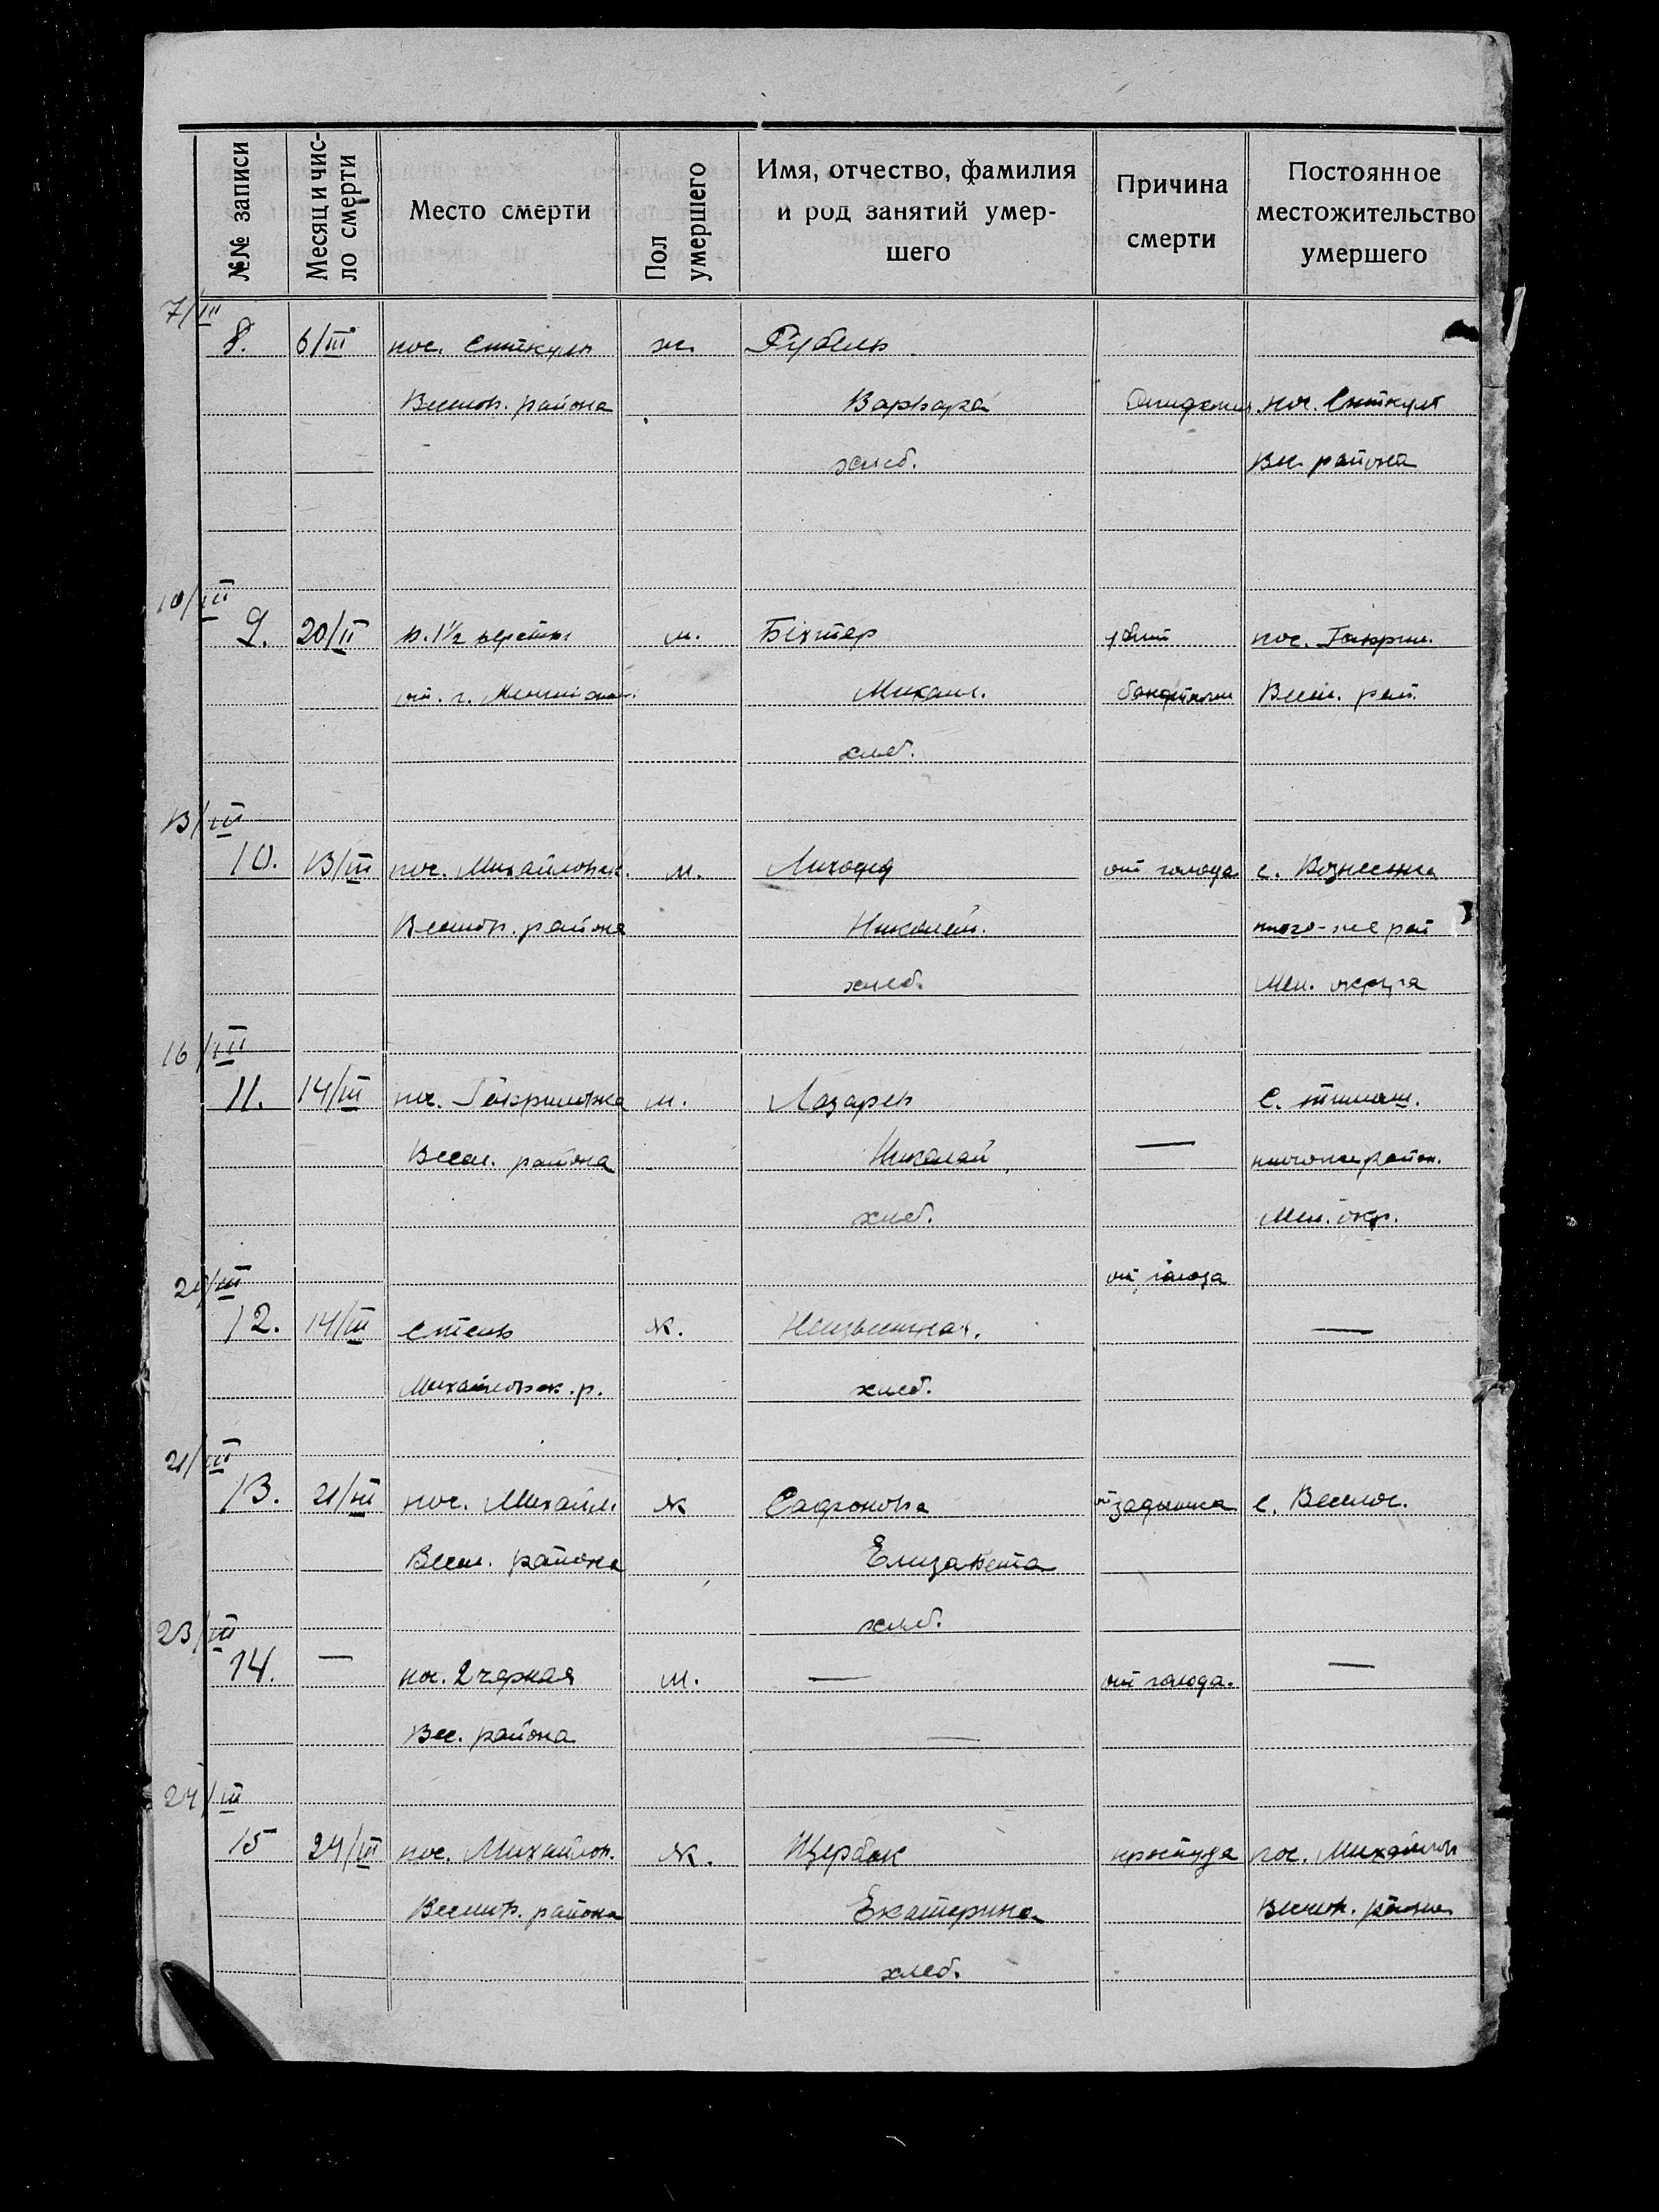 №№ записи
Месяц и чис-
ло смерти
Место смерти
Пол
умершего
Имя, отчество, фамилия
и род занятий умер-
шего
Причина
смерти
Постоянное
местожительство
умершего
7/III
8. 6/III пос. ж.
района Варвара пос.
хлеб. Вес. района
10/III
9. 20/II в. 1½ верст м. Біхтер убит пос. Гаврил.
от. г. Михаил. бандитами Весел. рай.
хлеб.
13/III
10. 13/III пос. Михайловск. м. от голода с. Вознесенка
района Николай. того-же рай
хлеб. Мел. округа
16/III
11. 14/III пос. Гавриловка м. Лазарев с.
Весел. района Николай — тогоже район.
хлеб. Мел. окр.
от голода
21/III
12. 14/III степь ж. Неизвестная. —
Михайловск. р. хлеб.
21/III
13. 21/III пос. Михайл. ж Сафронова с. Весел.
Весел. района Елизавета
хлеб.
23/III
14. — пос. 2 черная м. — от голода. —
Вес. района —
24/III
15 24/III пос. Михайлов. ж. Щербак простуда пос. Михайлов
Веселов. района Екатерина Веселов. района
хлеб.